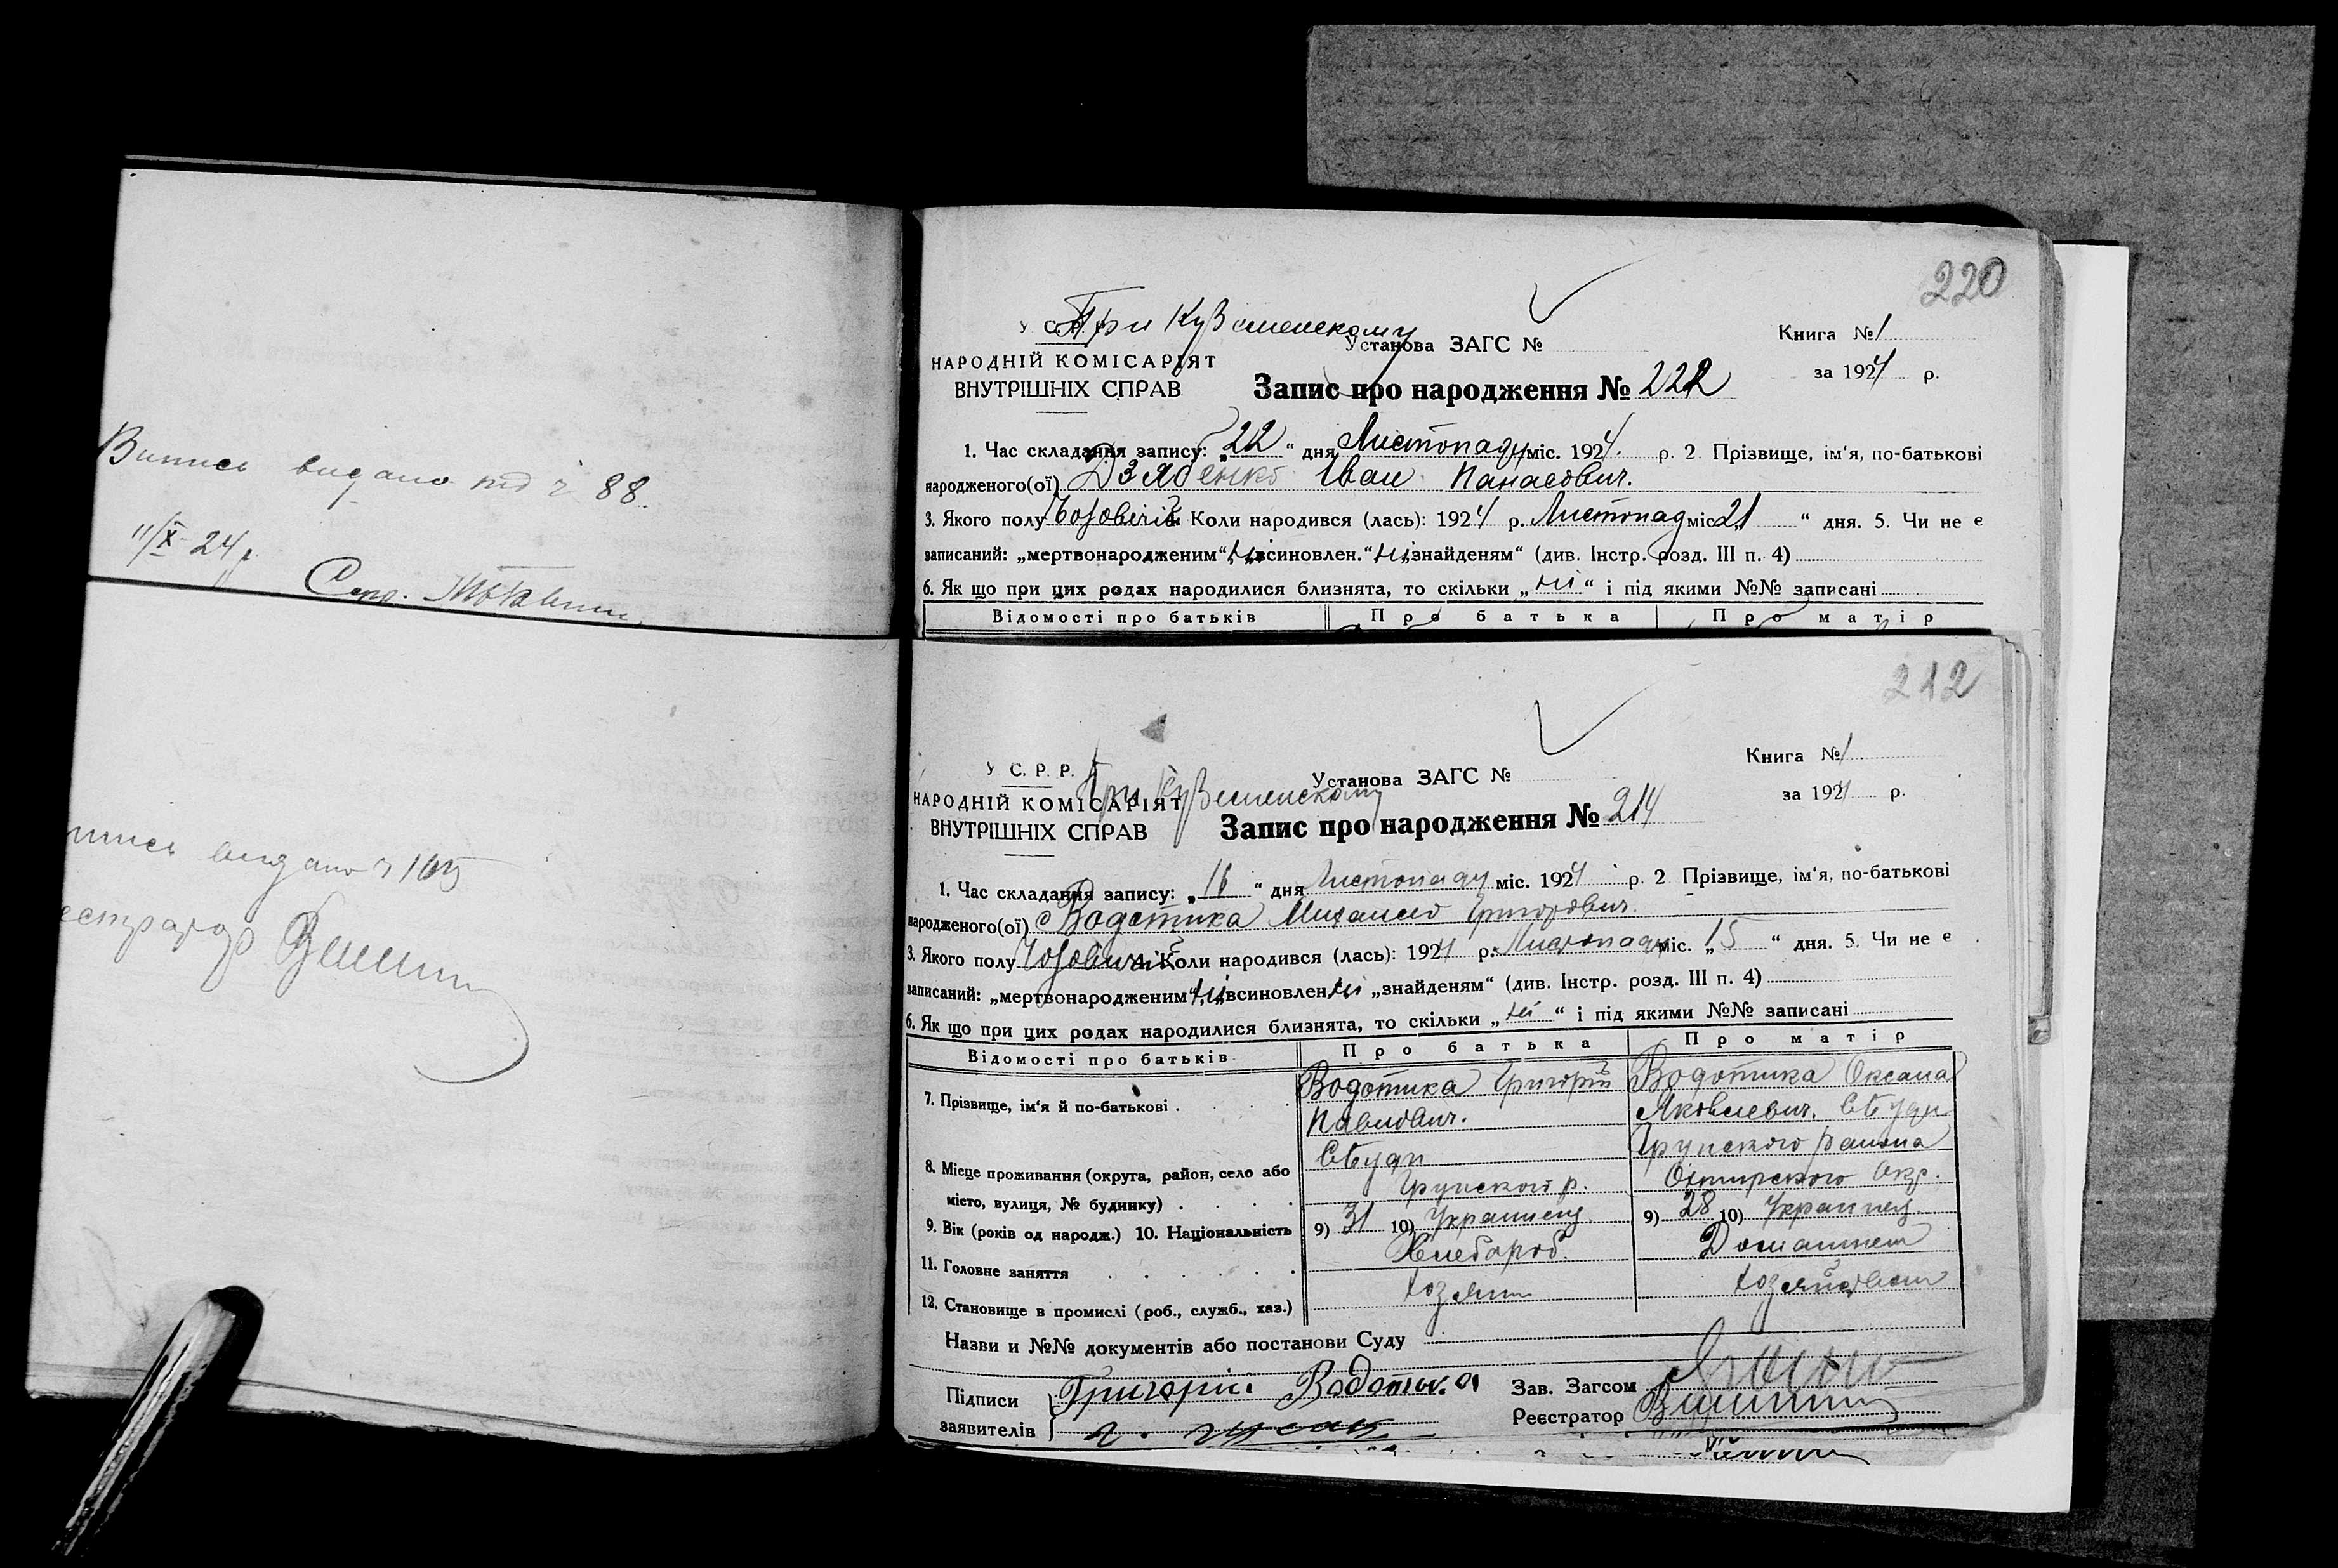 Випись видано під ч 88.
11/X 24 р.
Секр.
видано ч 105
220
При Куземенскому
У С. Р. Р.
Установа ЗАГС №
Книга № 1
НАРОДНІЙ КОМІСАРІЯТ
ВНУТРІШНІХ СПРАВ
за 1924 р.
Запис про народження № 222
1. Час складання запису: „22“ дня Листопаду міс. 1924. р. 2 Прізвище, ім'я, по-батькові
народженого(ої) Дзябенко Іван Панасович.
3. Якого полу Чоловічій Коли народився (лась): 1924 р. Листопад міс. 21 “ дня. 5. Чи не є
записаний: „мертвонародженим“ ні „всиновлен.“ ні „знайденям“ (див. Інстр. розд. III п. 4)
6. Як що при цих родах народилися близнята, то скільки „ні“ і під якими №№ записані
Відомості про батьків Про батька Про матір
212
У С. Р. Р.
При Куземенскому
Установа ЗАГС №
Книга № 1
НАРОДНІЙ КОМІСАРІЯТ
ВНУТРІШНІХ СПРАВ
за 1924 р.
Запис про народження № 214
1. Час складання запису: „16“ дня Листопаду міс. 1924 р. 2 Прізвище, ім'я, по-батькові
народженого(ої) Водотика Михайло Григорович.
3. Якого полу Чоловічій Коли народився (лась): 1924 р. Листопаду міс. „15“ дня. 5. Чи не є
записаний: „мертвонародженим“ ні „всиновлен ні „знайденям“ (див. Інстр. розд. III п. 4)
6. Як що при цих родах народилися близнята, то скільки „ні“ і під якими №№ записані
Відомості про батьків. Про батька Про матір
7. Прізвище, ім'я й по-батькові . Водотика Григорій Водотика Оксана
Павлович. Яковлевич.
8. Місце проживання (округа, район, село або Грунского района
місто, вулиця, № будинку) . Грунского р. Охтирского Окр.
9. Вік (років од народж.) 10. Національність 9) 31 10) Украинец. 9) 28 10) Украинец.
11. Головне заняття Хлебороб. Домашнем
12. Становище в промислі (роб., служб., хаз.) хозяин хозяйством
Назви и №№ документів або постанови Суду
Підписи Григорій Водотика Зав. Загсом
заявителів Реєстратор